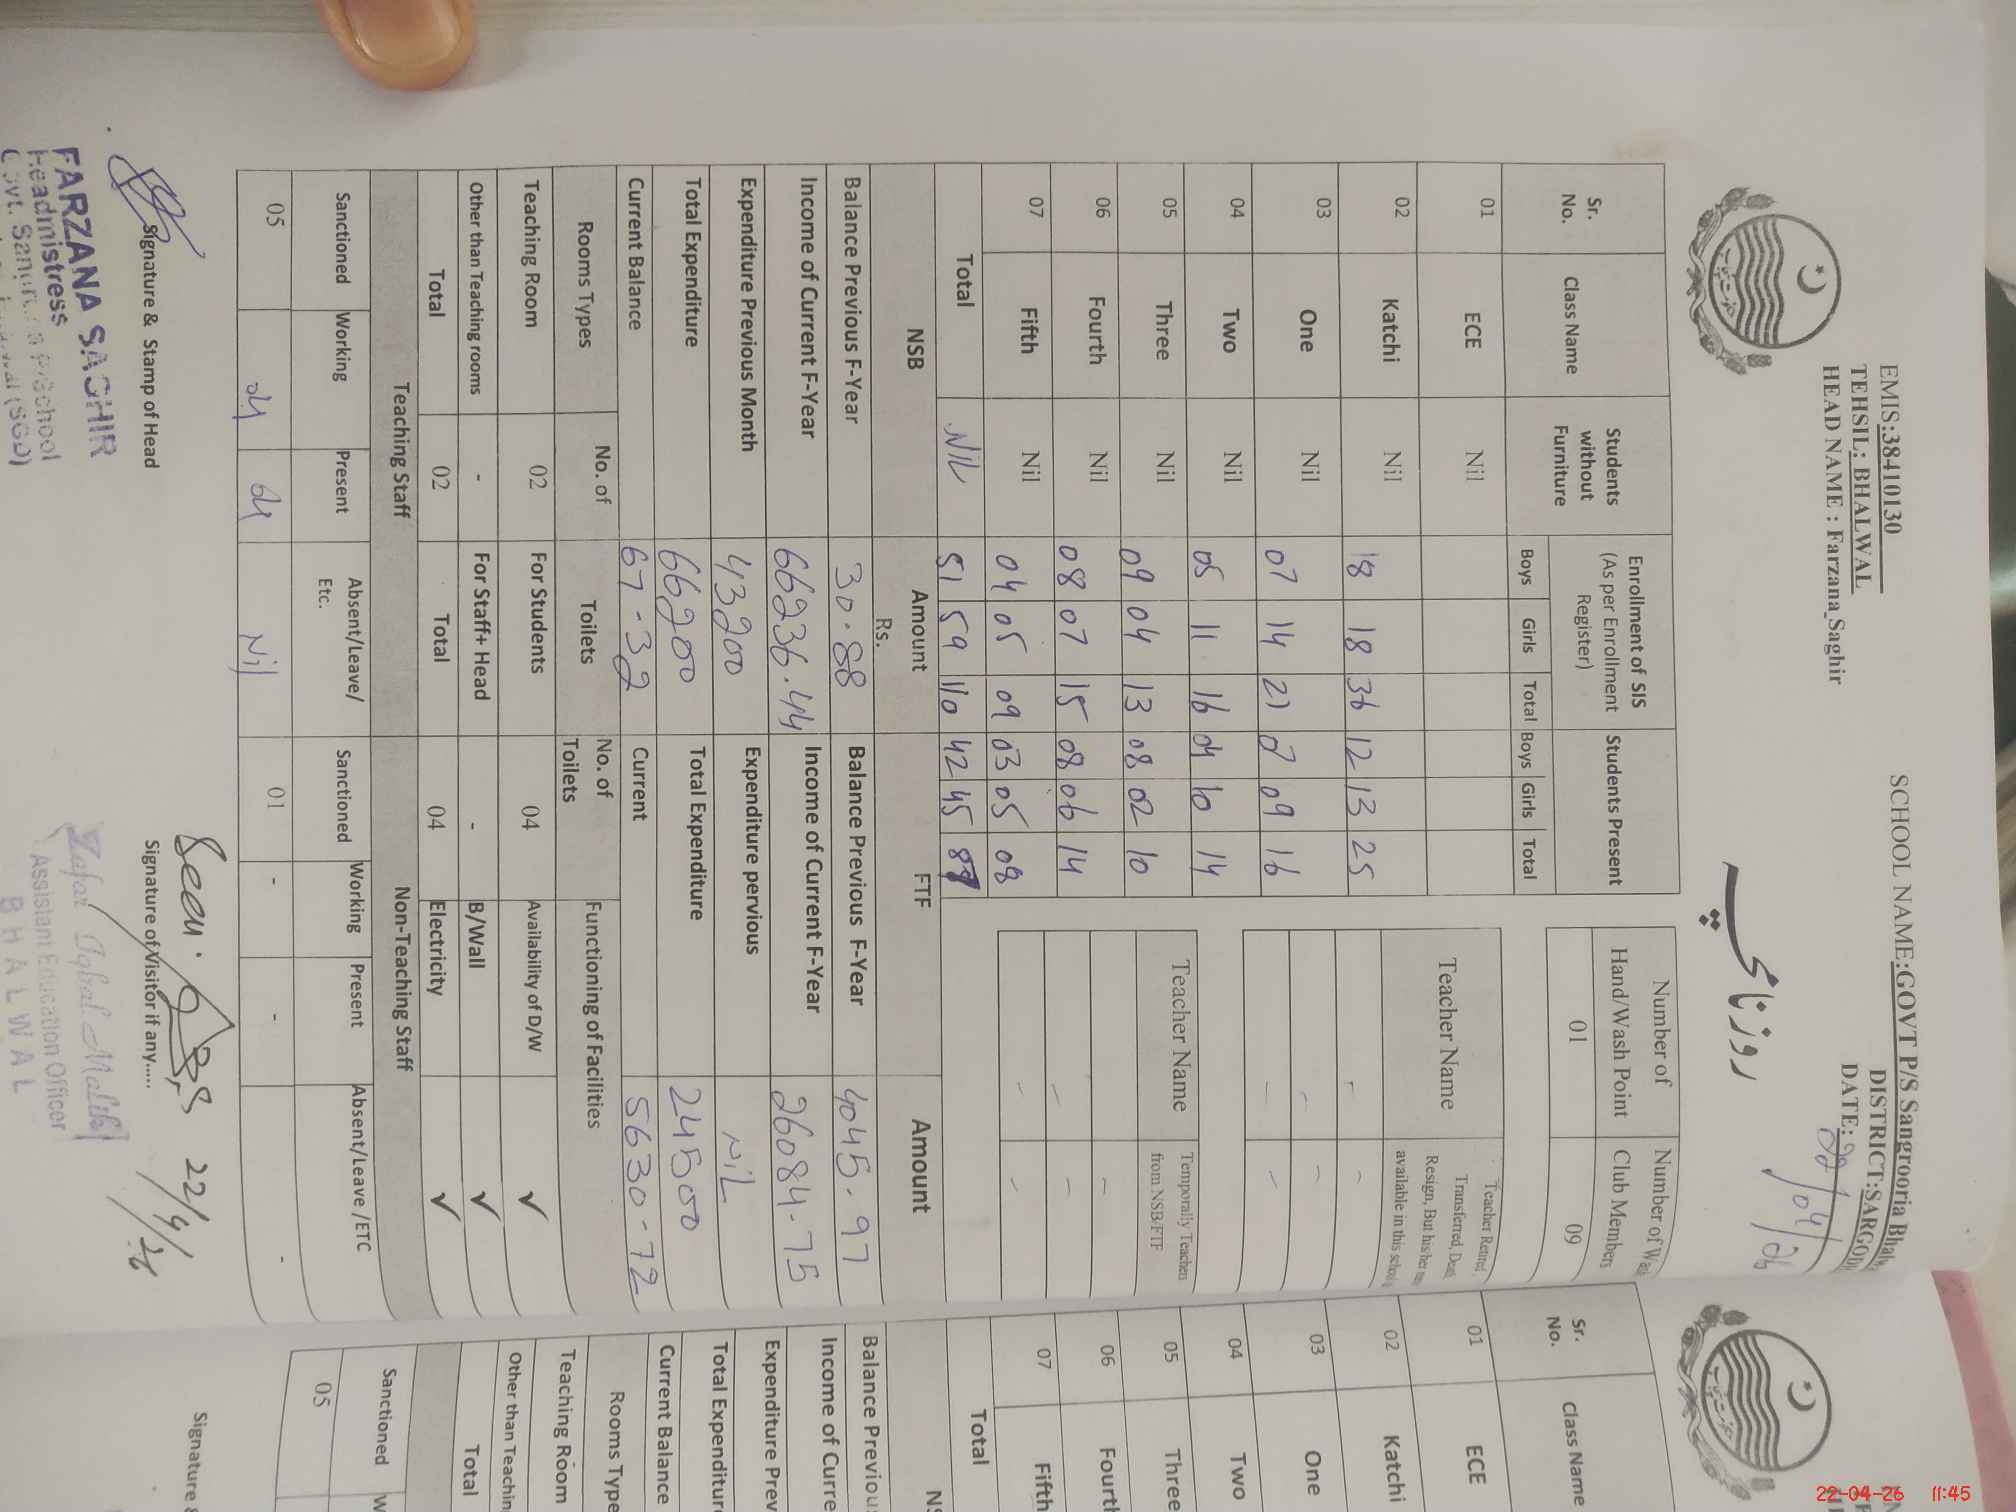 EMIS:38410130
SCHOOL NAME:GOVT P/S Sangrooria
TEHSIL: BHALWAL
DISTRICT:
HEAD NAME : Farzana Saghir
DATE: 22/04/26
روزنامچہ
Sr. No. Class Name Students without Furniture Enrollment of SIS (As per Enrollment Register) Students Present
Boys Girls Total Boys Girls Total
01 ECE Nil
02 Katchi Nil 18 18 36 12 13 25
03 One Nil 07 14 21 07 09 16
04 Two Nil 05 11 16 04 10 14
05 Three Nil 09 04 13 08 02 10
06 Fourth Nil 08 07 15 08 06 14
07 Fifth Nil 04 05 09 03 05 08
Total NiL 51 59 110 42 45
Number of Hand/Wash Point Number of Club Members
01 09
Teacher Name Teacher Retired, Transferred, Resign, But his/her available in this
- -
- -
- -
Teacher Name Temporally Teachers from NSB/FTF
-
- -
- -
NSB Amount Rs. FTF Amount
Balance Previous F-Year 30.88 Balance Previous F-Year 4045.97
Income of Current F-Year 66236.44 Income of Current F-Year 26084-75
Expenditure Previous Month 43200 Expenditure pervious NiL
Total Expenditure 66200 Total Expenditure 24500
Current Balance 67-32 Current 5630-72
Rooms Types No. of Toilets No. of Toilets Functioning of Facilities
Teaching Room 02 For Students 04 Availability of D/W ✓
Other than Teaching rooms - For Staff+ Head - B/Wall ✓
Total 02 Total 04 Electricity ✓
Teaching Staff Non-Teaching Staff
Sanctioned Working Present Absent/Leave/ Etc. Sanctioned Working Present Absent/Leave /ETC
05 04 04 Nil 01 - - -
Seen. 22/4/26
Signature & Stamp of Head Signature of Visitor if any.....
FARZANA SAGHIR
Headmistress
Zafar Iqbal Malik
Assistant Education Officer
BHALWAL
Sr. No. Class Name
01 ECE
02 Katchi
03 One
04 Two
05 Three
06 Fourth
07 Fifth
Total
Balance Previous
Income of
Total
Current Balance
Teaching Room
Other than
Total
Sanctioned
05
Signature
22-04-26 11:45